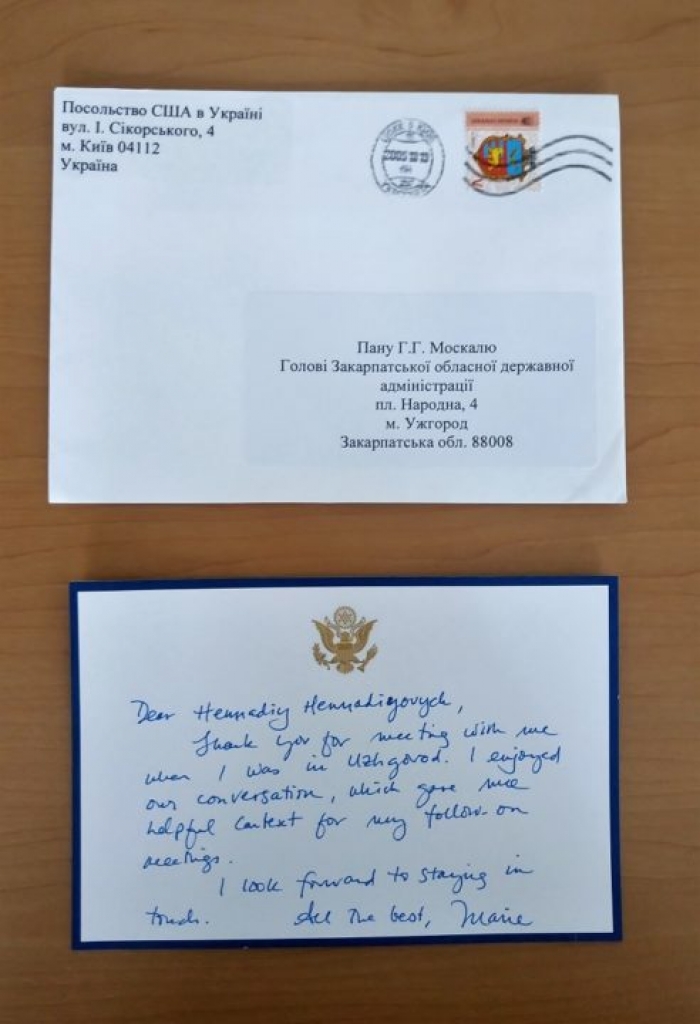 Посольство США в Україні
вул. І. Сікорського, 4
м. Київ 04112
Україна
Пану Г.Г. Москалю
Голові Закарпатської обласної державної
адміністрації
пл. Народна, 4
м. Ужгород
Закарпатська обл. 88008
Dear Hennadiy Hennadiyovych,
Thank you for meeting with me
when I was in Uzhgorod. I enjoyed
our conversation, which gave me
helpful context for my follow-on
meetings.
I look forward to staying in
touch. All the best, Marie